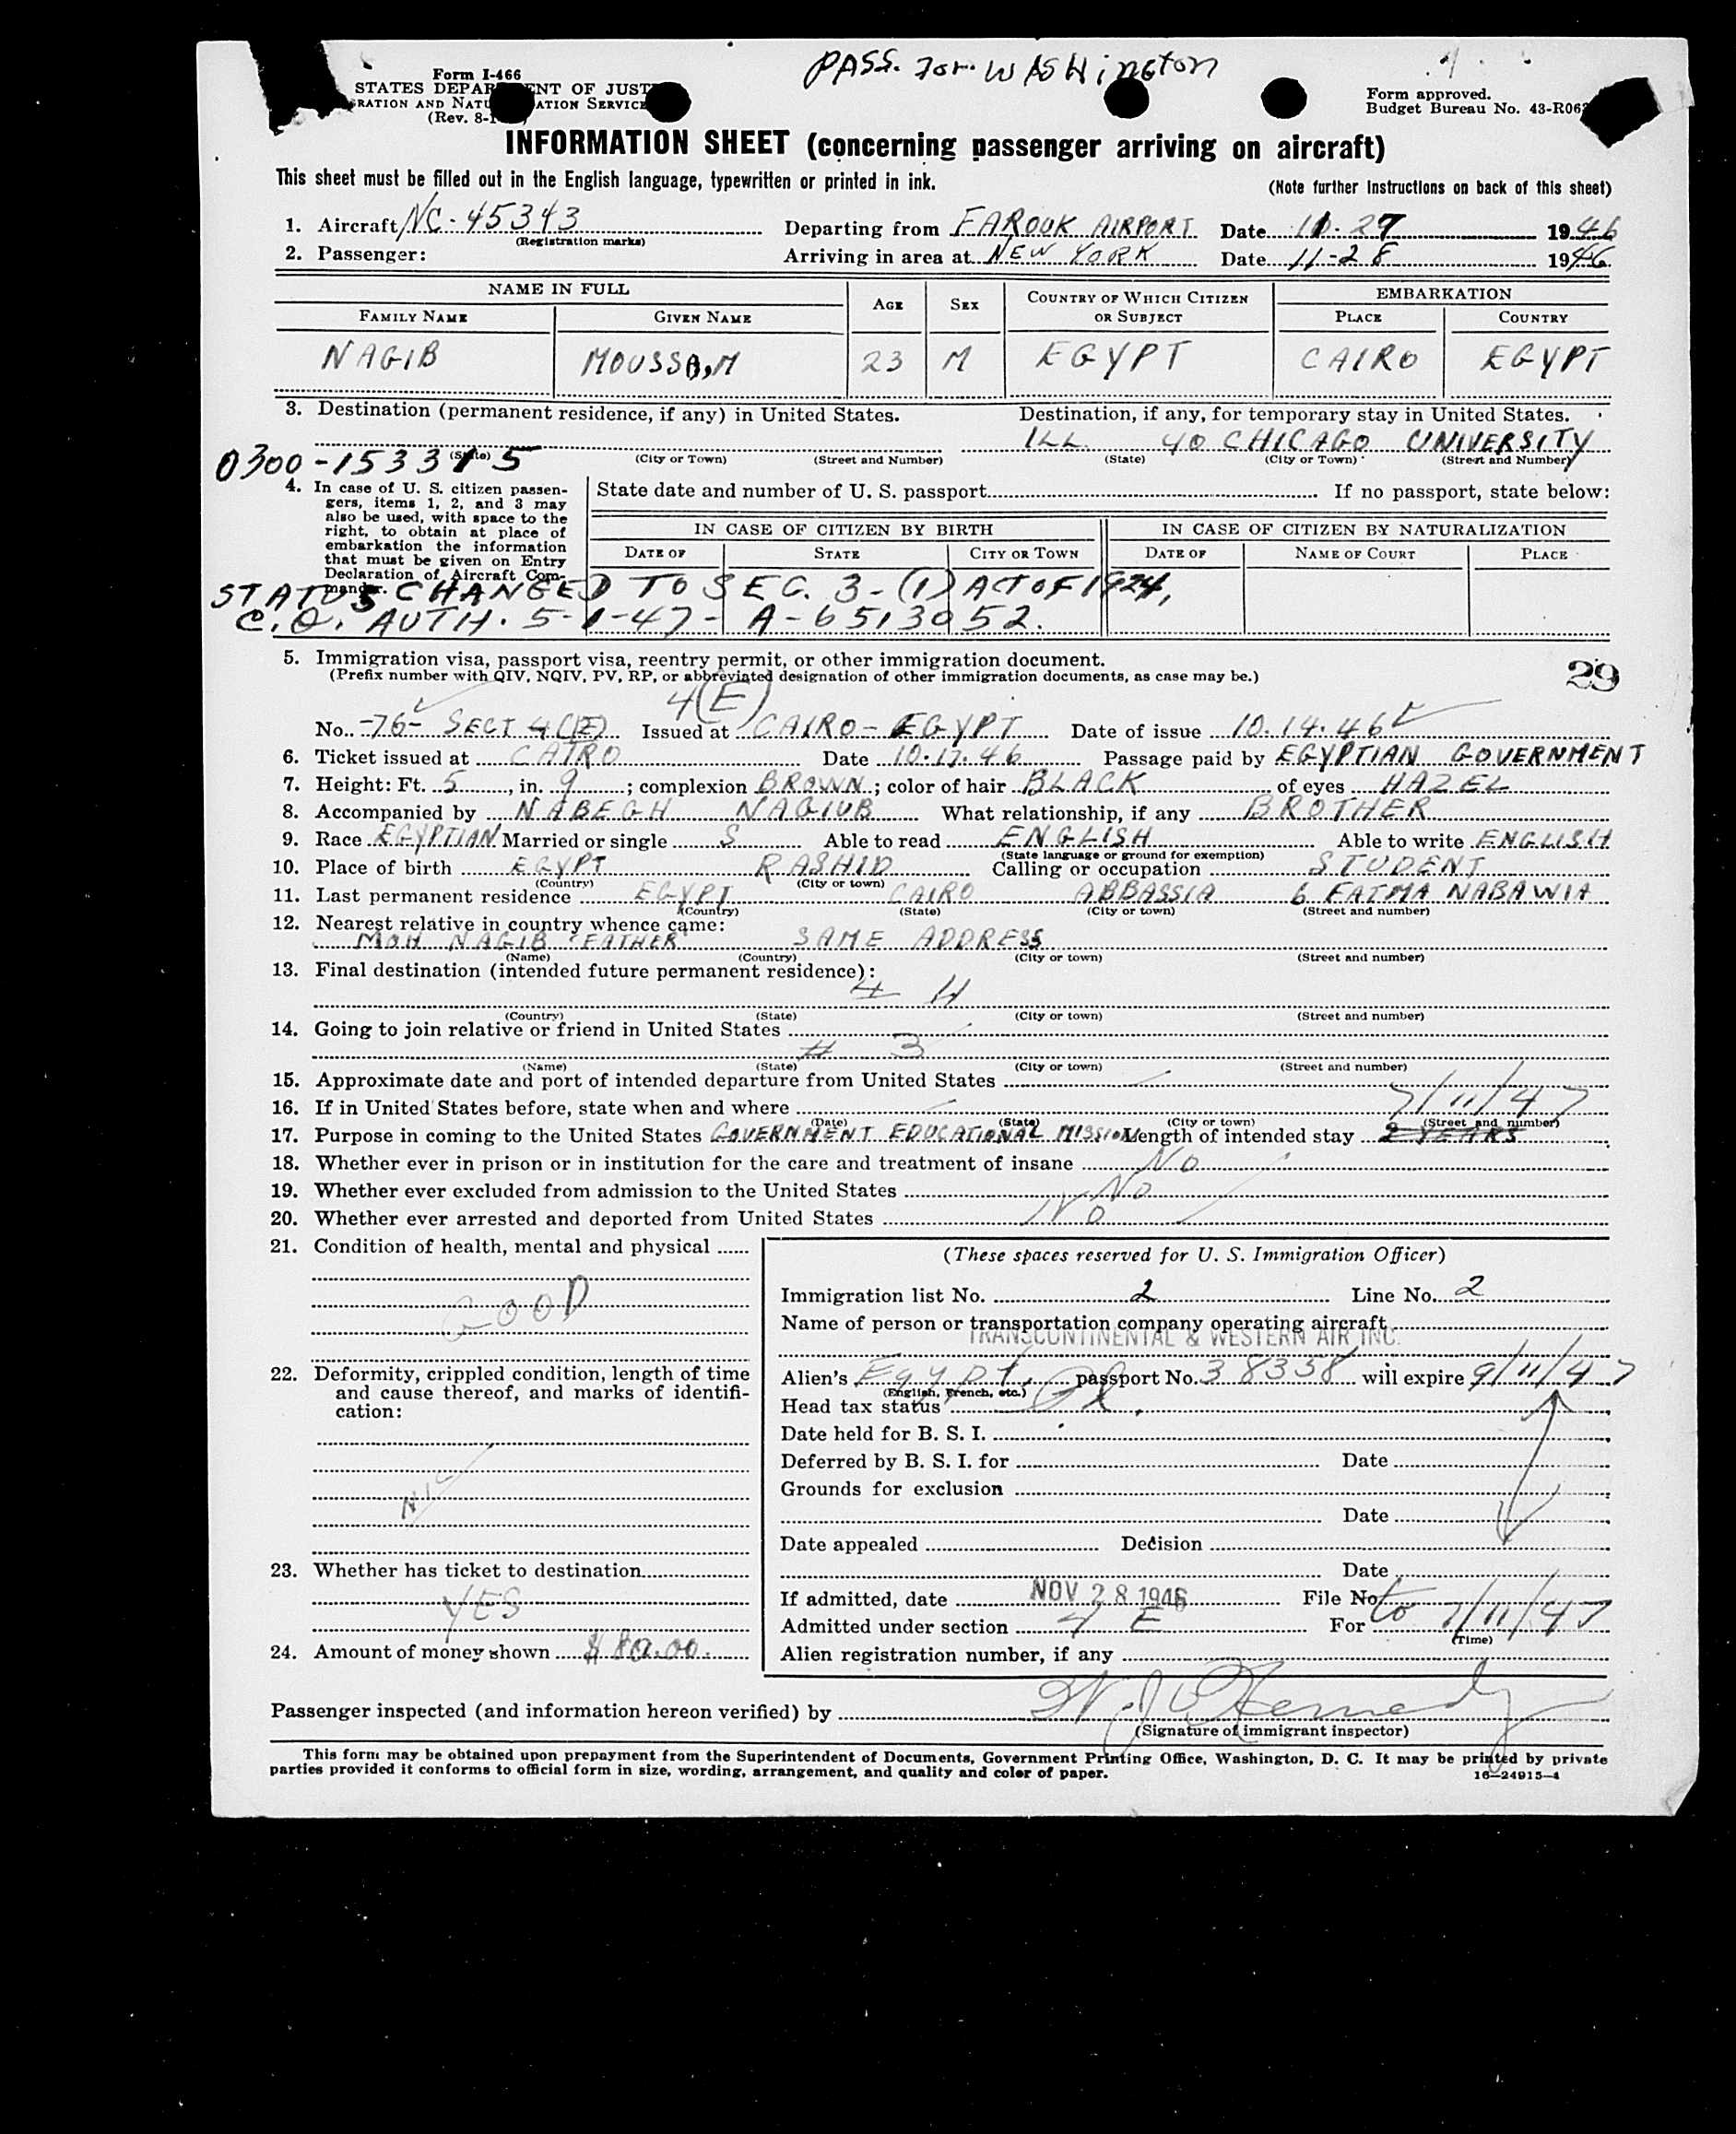 PASS. For. WASHington
Form I-466
STATES DEPAR NT OF JUST
RATION AND NATU ATION SERVICE
(Rev. 8-1
Form approved.
Budget Bureau No. 43-R06
INFORMATION SHEET (concerning passenger arriving on aircraft)
This sheet must be filled out in the English language, typewritten or printed in ink.
(Note further instructions on back of this sheet)
1. Aircraft NC-45343 Departing from FAROUK AIRPORT Date 11.27 1946
(Registration marks)
2. Passenger: Arriving in area at NEW YORK Date 11-28 1946
NAME IN FULL AGE SEX COUNTRY OF WHICH CITIZEN OR SUBJECT EMBARKATION
FAMILY NAME GIVEN NAME PLACE COUNTRY
NAGIB MOUSSA,M 23 M EGYPT CAIRO EGYPT
3. Destination (permanent residence, if any) in United States. Destination, if any, for temporary stay in United States.
ILL. 40 CHICAGO UNIVERSITY
(State) (City or Town) (Street and Number) (State) (City or Town) (Street and Number)
0300-153315
4. In case of U. S. citizen passengers, items 1, 2, and 3 may also be used, with space to the right, to obtain at place of embarkation the information that must be given on Entry Declaration of Aircraft Commander.
State date and number of U. S. passport If no passport, state below:
IN CASE OF CITIZEN BY BIRTH IN CASE OF CITIZEN BY NATURALIZATION
DATE OF STATE CITY OR TOWN DATE OF NAME OF COURT PLACE
STATUS CHANGED TO SEC. 3-(1) ACT OF 1924,
C.O. AUTH. 5-1-47- A-6513052.
5. Immigration visa, passport visa, reentry permit, or other immigration document.
29
(Prefix number with QIV, NQIV, PV, RP, or abbreviated designation of other immigration documents, as case may be.)
4(E)
No. -76- SECT 4(E) Issued at CAIRO-EGYPT Date of issue 10.14.46
6. Ticket issued at CAIRO Date 10.17.46 Passage paid by EGYPTIAN GOVERNMENT
7. Height: Ft. 5, in. 9; complexion BROWN; color of hair BLACK of eyes HAZEL
8. Accompanied by NABEGH NAGIUB What relationship, if any BROTHER
9. Race EGYPTIAN Married or single S Able to read ENGLISH Able to write ENGLISH
(State language or ground for exemption)
10. Place of birth EGYPT RASHID Calling or occupation STUDENT
(Country) (City or town)
11. Last permanent residence EGYPT CAIRO ABBASSIA 6 FATMA NABAWIA
(Country) (State) (City or town) (Street and number)
12. Nearest relative in country whence came:
MOH NAGIB "FATHER" SAME ADDRESS
(Name) (Country) (City or town) (Street and number)
13. Final destination (intended future permanent residence):
4 H
(Country) (State) (City or town) (Street and number)
14. Going to join relative or friend in United States
# 3
(Name) (State) (City or town) (Street and number)
15. Approximate date and port of intended departure from United States
16. If in United States before, state when and where 7/11/47
(Date) (State) (City or town) (Street and number)
17. Purpose in coming to the United States GOVERNMENT EDUCATIONAL MISSION Length of intended stay 2 YEARS
18. Whether ever in prison or in institution for the care and treatment of insane NO
19. Whether ever excluded from admission to the United States NO
20. Whether ever arrested and deported from United States NO
21. Condition of health, mental and physical
GOOD
22. Deformity, crippled condition, length of time and cause thereof, and marks of identification:
NIL
23. Whether has ticket to destination
YES
24. Amount of money shown $80.00.
(These spaces reserved for U. S. Immigration Officer)
Immigration list No. 2 Line No. 2
Name of person or transportation company operating aircraft
TRANSCONTINENTAL & WESTERN AIR INC.
Alien's Egypt. passport No. 38358 will expire 9/11/47
(English, French, etc.)
Head tax status
Date held for B. S. I.
Deferred by B. S. I. for Date
Grounds for exclusion
Date
Date appealed Decision
Date
If admitted, date NOV 28 1946 File No.
Admitted under section 4 E For to 7/11/47
(Time)
Alien registration number, if any
Passenger inspected (and information hereon verified) by
(Signature of immigrant inspector)
This form may be obtained upon prepayment from the Superintendent of Documents, Government Printing Office, Washington, D. C. It may be printed by private
parties provided it conforms to official form in size, wording, arrangement, and quality and color of paper.
16—24915-1